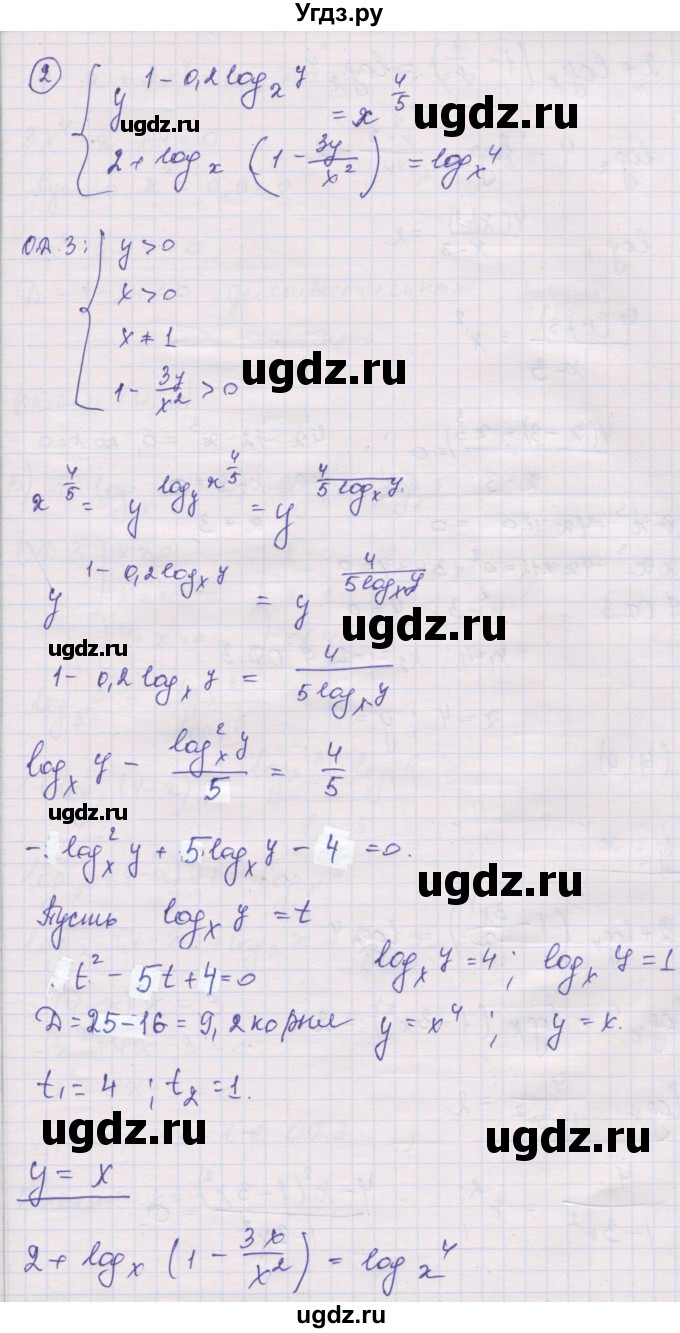 Угдз.ру
2) { y^{1-0,2 log_x y} = x^{4/5}
2 + log_x (1 - 3y/x²) = log_x 4
О.Д.З: { y > 0
x > 0
x ≠ 1
1 - 3y/x² > 0
ugdz.ru
ugdz.ru
ugdz.ru
x^{4/5} = y^{log_y x^{4/5}} = y^{4/(5 log_x y)}
y^{1-0,2 log_x y} = y^{4/(5 log_x y)}
ugdz.ru
ugdz.ru
1 - 0,2 log_x y = 4/(5 log_x y)
log_x y - log_x² y/5 = 4/5
ugdz.ru
- log_x² y + 5 log_x y - 4 = 0.
ugdz.ru
Пусть log_x y = t
t² - 5t + 4 = 0 log_x y = 4 ; log_x y = 1
Д = 25 - 16 = 9, 2 корня y = x⁴ ; y = x.
t₁ = 4 ; t₂ = 1.
ugdz.ru
ugdz.ru
y = x
2 + log_x (1 - 3x/x²) = log_x 4
ugdz.ru